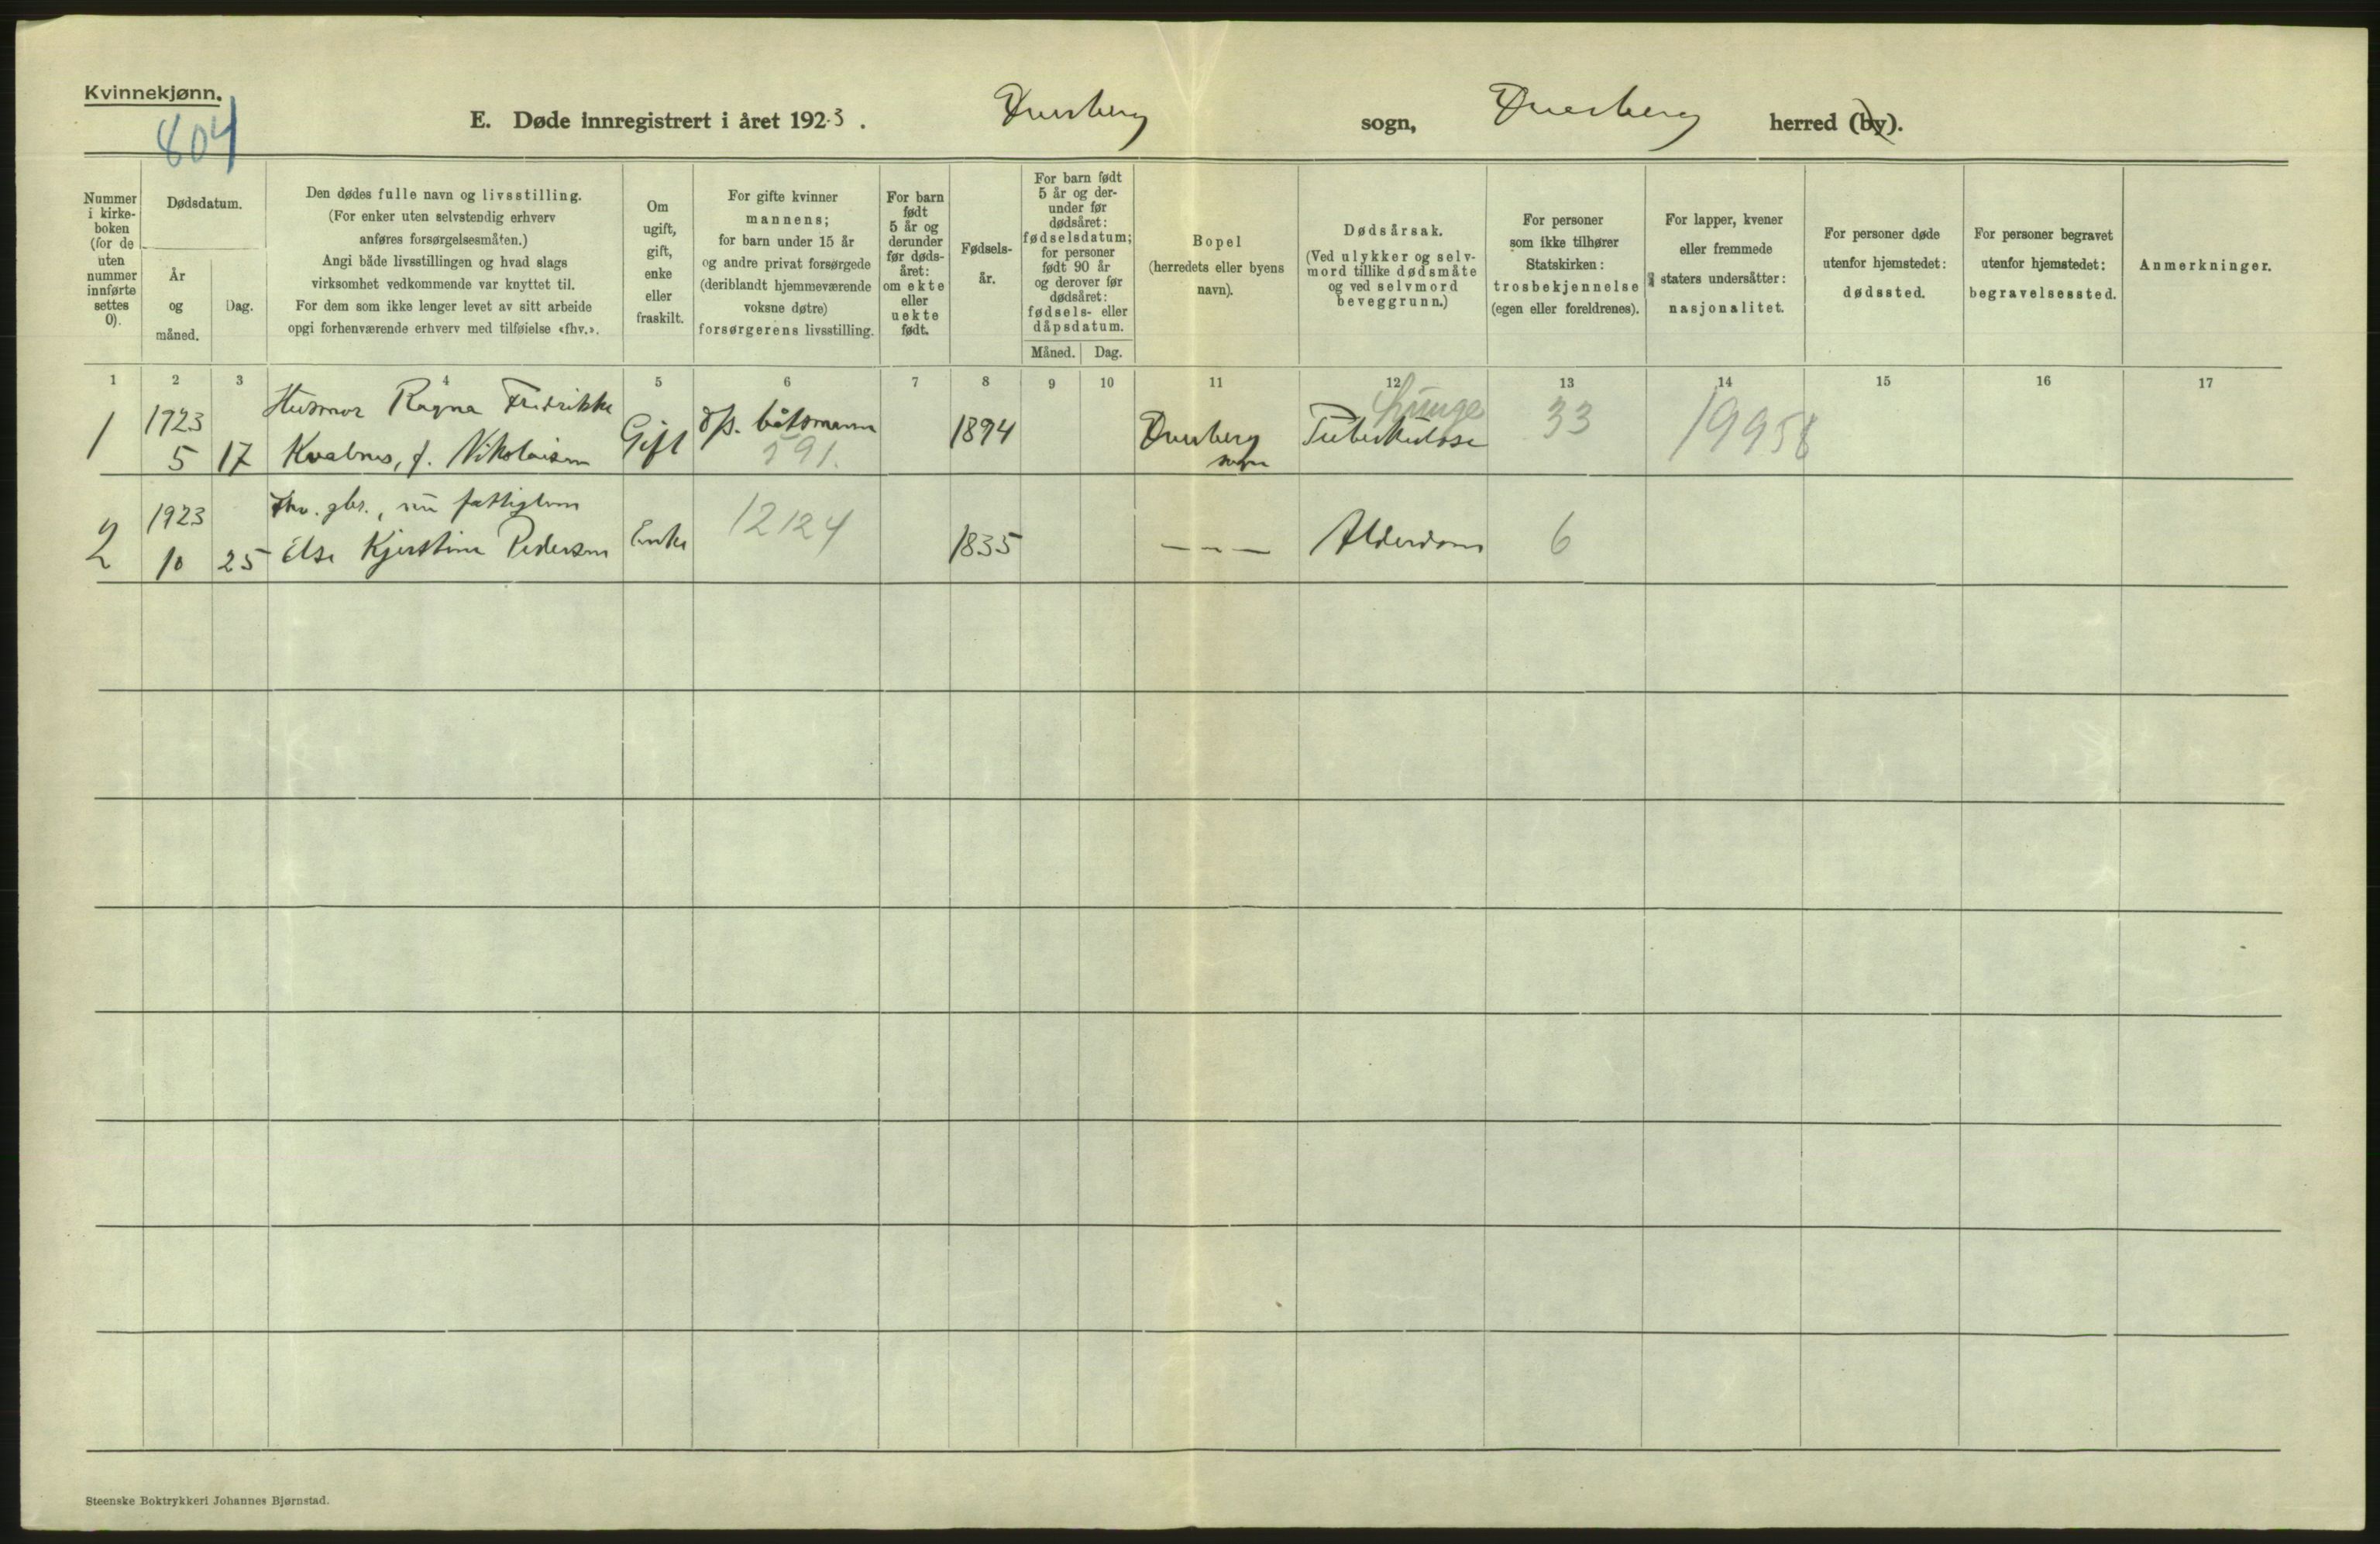 Kvinnekjønn.
804
E. Døde innregistrert i året 1923. Dverberg sogn, Dverberg herred (by).
Nummer i kirkeboken (for de uten nummer innførte settes 0).
Dødsdatum.
År og måned.
Dag.
Den dødes fulle navn og livsstilling.
(For enker uten selvstendig erhverv
anføres forsørgelsesmåten.)
Angi både livsstillingen og hvad slags
virksomhet vedkommende var knyttet til.
For dem som ikke lenger levet av sitt arbeide
opgi forhenværende erhverv med tilføielse «fhv.».
Om
ugift,
gift,
enke
eller
fraskilt.
For gifte kvinner
mannens;
for barn under 15 år
og andre privat forsørgede
(deriblandt hjemmeværende
voksne døtre)
forsørgerens livsstilling.
For barn
født
5 år og
derunder
før døds-
året:
om ekte
eller
uekte
født.
Fødsels-
år.
For barn født
5 år og der-
under før
dødsåret:
fødselsdatum;
for personer
født 90 år
og derover før
dødsåret:
fødsels- eller
dåpsdatum.
Måned. Dag.
Bopel
(herredets eller byens
navn).
Dødsårsak.
(Ved ulykker og selv-
mord tillike dødsmåte
og ved selvmord
beveggrunn.)
For personer
som ikke tilhører
Statskirken:
trosbekjennelse
(egen eller foreldrenes).
For lapper, kvener
eller fremmede
staters undersåtter:
nasjonalitet.
For personer døde
utenfor hjemstedet:
dødssted.
For personer begravet
utenfor hjemstedet:
begravelsessted.
Anmerkninger.
1 2 3 4 5 6 7 8 9 10 11 12 13 14 15 16 17
1 1923 5 17 Husmor Ragna Fredrikke
Kvalnes, f. Nikolaisen Gift d/s. båtsmann
591. 1894 Dverberg
sogn Lunge
Tuberkulose 33 19958
2 1923 10 25 Fhv. gbr., nu fattiglem
Else Kjerstine Pedersen Enke 12124 1835 — — — Alderdom 6
Steenske Boktrykkeri Johannes Bjørnstad.